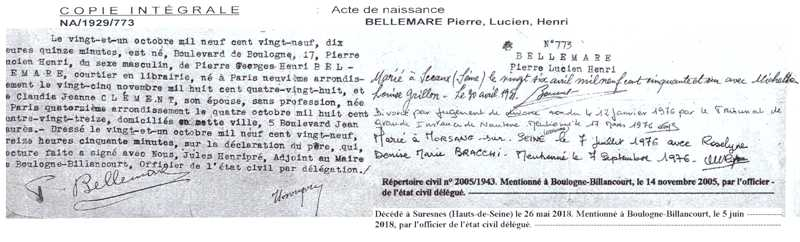 COPIE INTÉGRALE : Acte de naissance
NA/1929/773 BELLEMARE Pierre, Lucien, Henri
Le vingt-et-un octobre mil neuf cent vingt-neuf, dix
eures quinze minutes, est né, Boulevard de Boulogne, 17, Pierre
ucien Henri, du sexe masculin, de Pierre Georges Henri BEL-
EMARE, courtier en librairie, né à Paris neuvième arrondis-
ement le vingt-cinq novembre mil huit cent quatre-vingt-huit, et
e Claudia Jeanne CLÉMENT, son épouse, sans profession, née
Paris quatorzième arrondissement le quatre octobre mil huit cent
uatre-vingt-treize, domiciliés en cette ville, 5 Boulevard Jean
aurès.- Dressé le vingt-et-un octobre mil neuf cent vingt-neuf,
reize heures cinquante minutes, sur la déclaration du père, qui,
ecture faite a signé avec Nous, Jules Henripré, Adjoint au Maire
e Boulogne-Billancourt, Officier de l'état civil par délégation./
P. Bellemare
Henripré
N°773
BELLEMARE
Pierre Lucien Henri
Marié à Sceaux (Seine) le vingt six avril mil neuf cent cinquante et un avec Micheline
Louise Grillon. Le 30 avril 1951.
Divorcé par jugement de divorce rendu le 12 janvier 1976 par le Tribunal de
Grande Instance de Nanterre. Mentionné le 17 Mars 1976
Marié à MORSANG-SUR-SEINE (Essonne) le 7 juillet 1976 avec Roselyne
Denise Marie BRACCHI. Mentionné le 7 Septembre 1976.
Répertoire civil n° 2005/1943. Mentionné à Boulogne-Billancourt, le 14 novembre 2005, par l'officier
de l'état civil délégué.
Décédé à Suresnes (Hauts-de-Seine) le 26 mai 2018. Mentionné à Boulogne-Billancourt, le 5 juin
2018, par l'officier de l'état civil délégué.